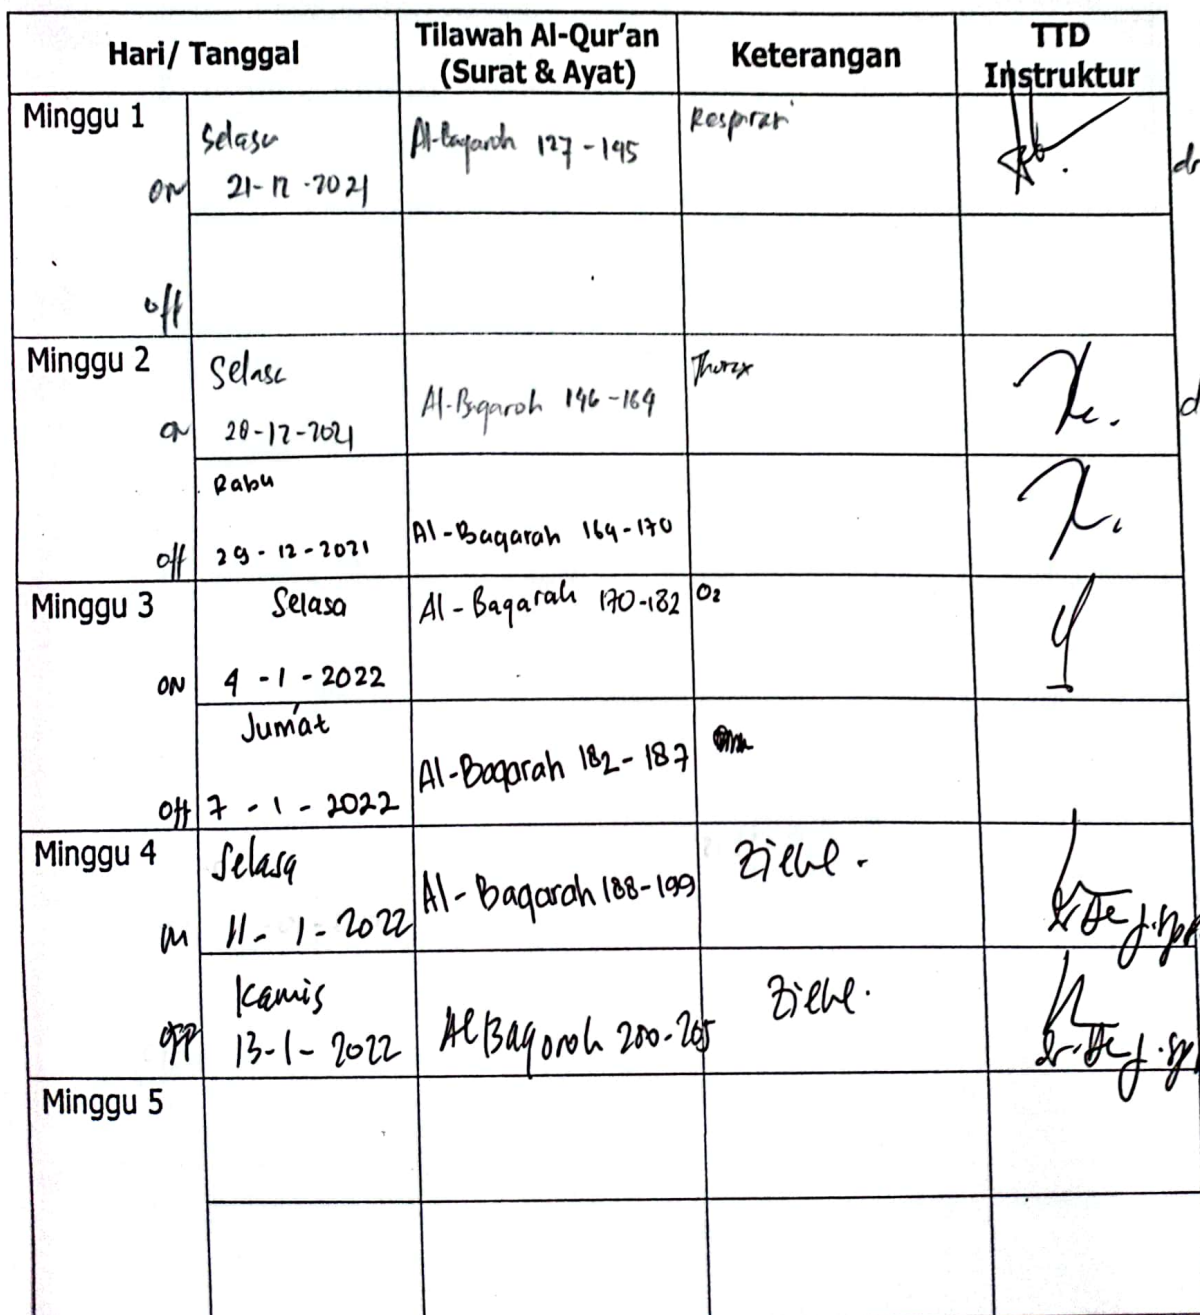 Hari/ Tanggal
Tilawah Al-Qur'an
(Surat & Ayat)
Keterangan
TTD
Instruktur
Minggu 1
on
Selasa
21-12-2021
Al-Baqaroh 127-145
Respirasi
off
Minggu 2
on
Selasa
28-12-2021
Al-Baqaroh 146-164
Thorax
off
Rabu
29-12-2021
Al-Baqarah 164-170
Minggu 3
ON
Selasa
4-1-2022
Al-Baqarah 170-182
O2
Off
Jum'at
7-1-2022
Al-Baqarah 182-187
Minggu 4
on
Selasa
11-1-2022
Al-Baqarah 188-199
Ziehl.
off
Kamis
13-1-2022
Al Baqoroh 200-205
Ziehl.
Minggu 5